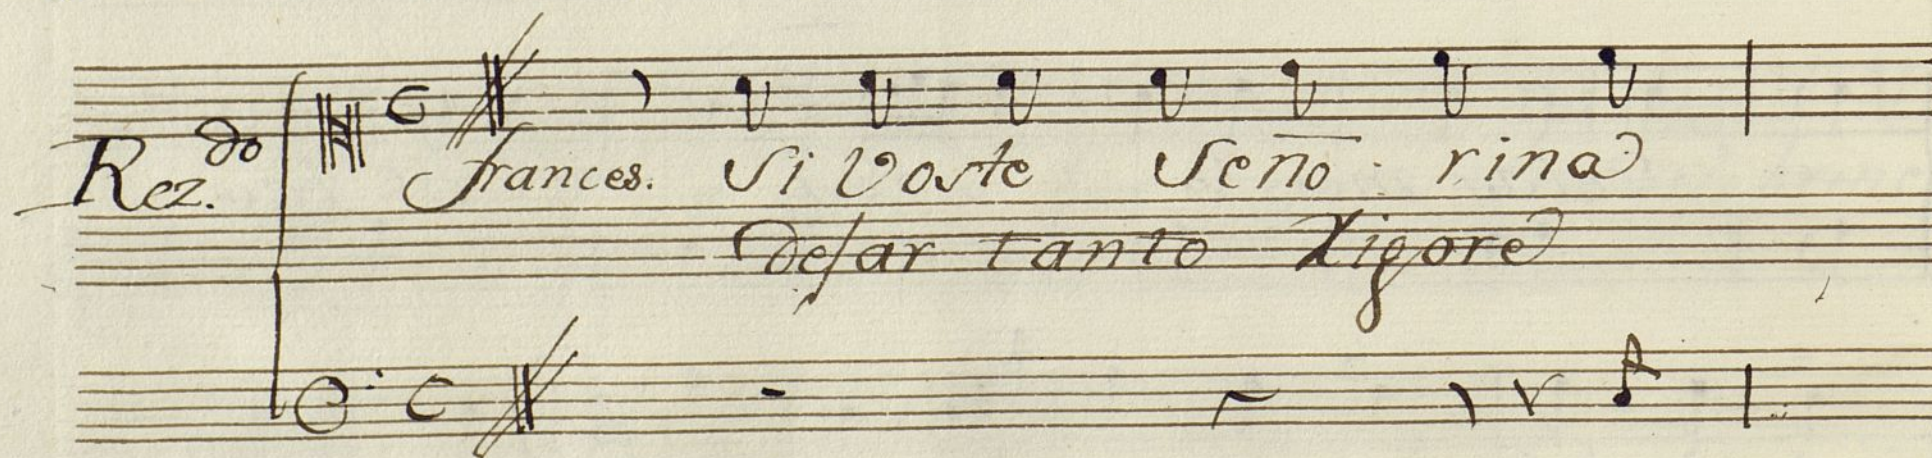 Rez.do frances. Si Voste Señorina
desar tanto Rigore